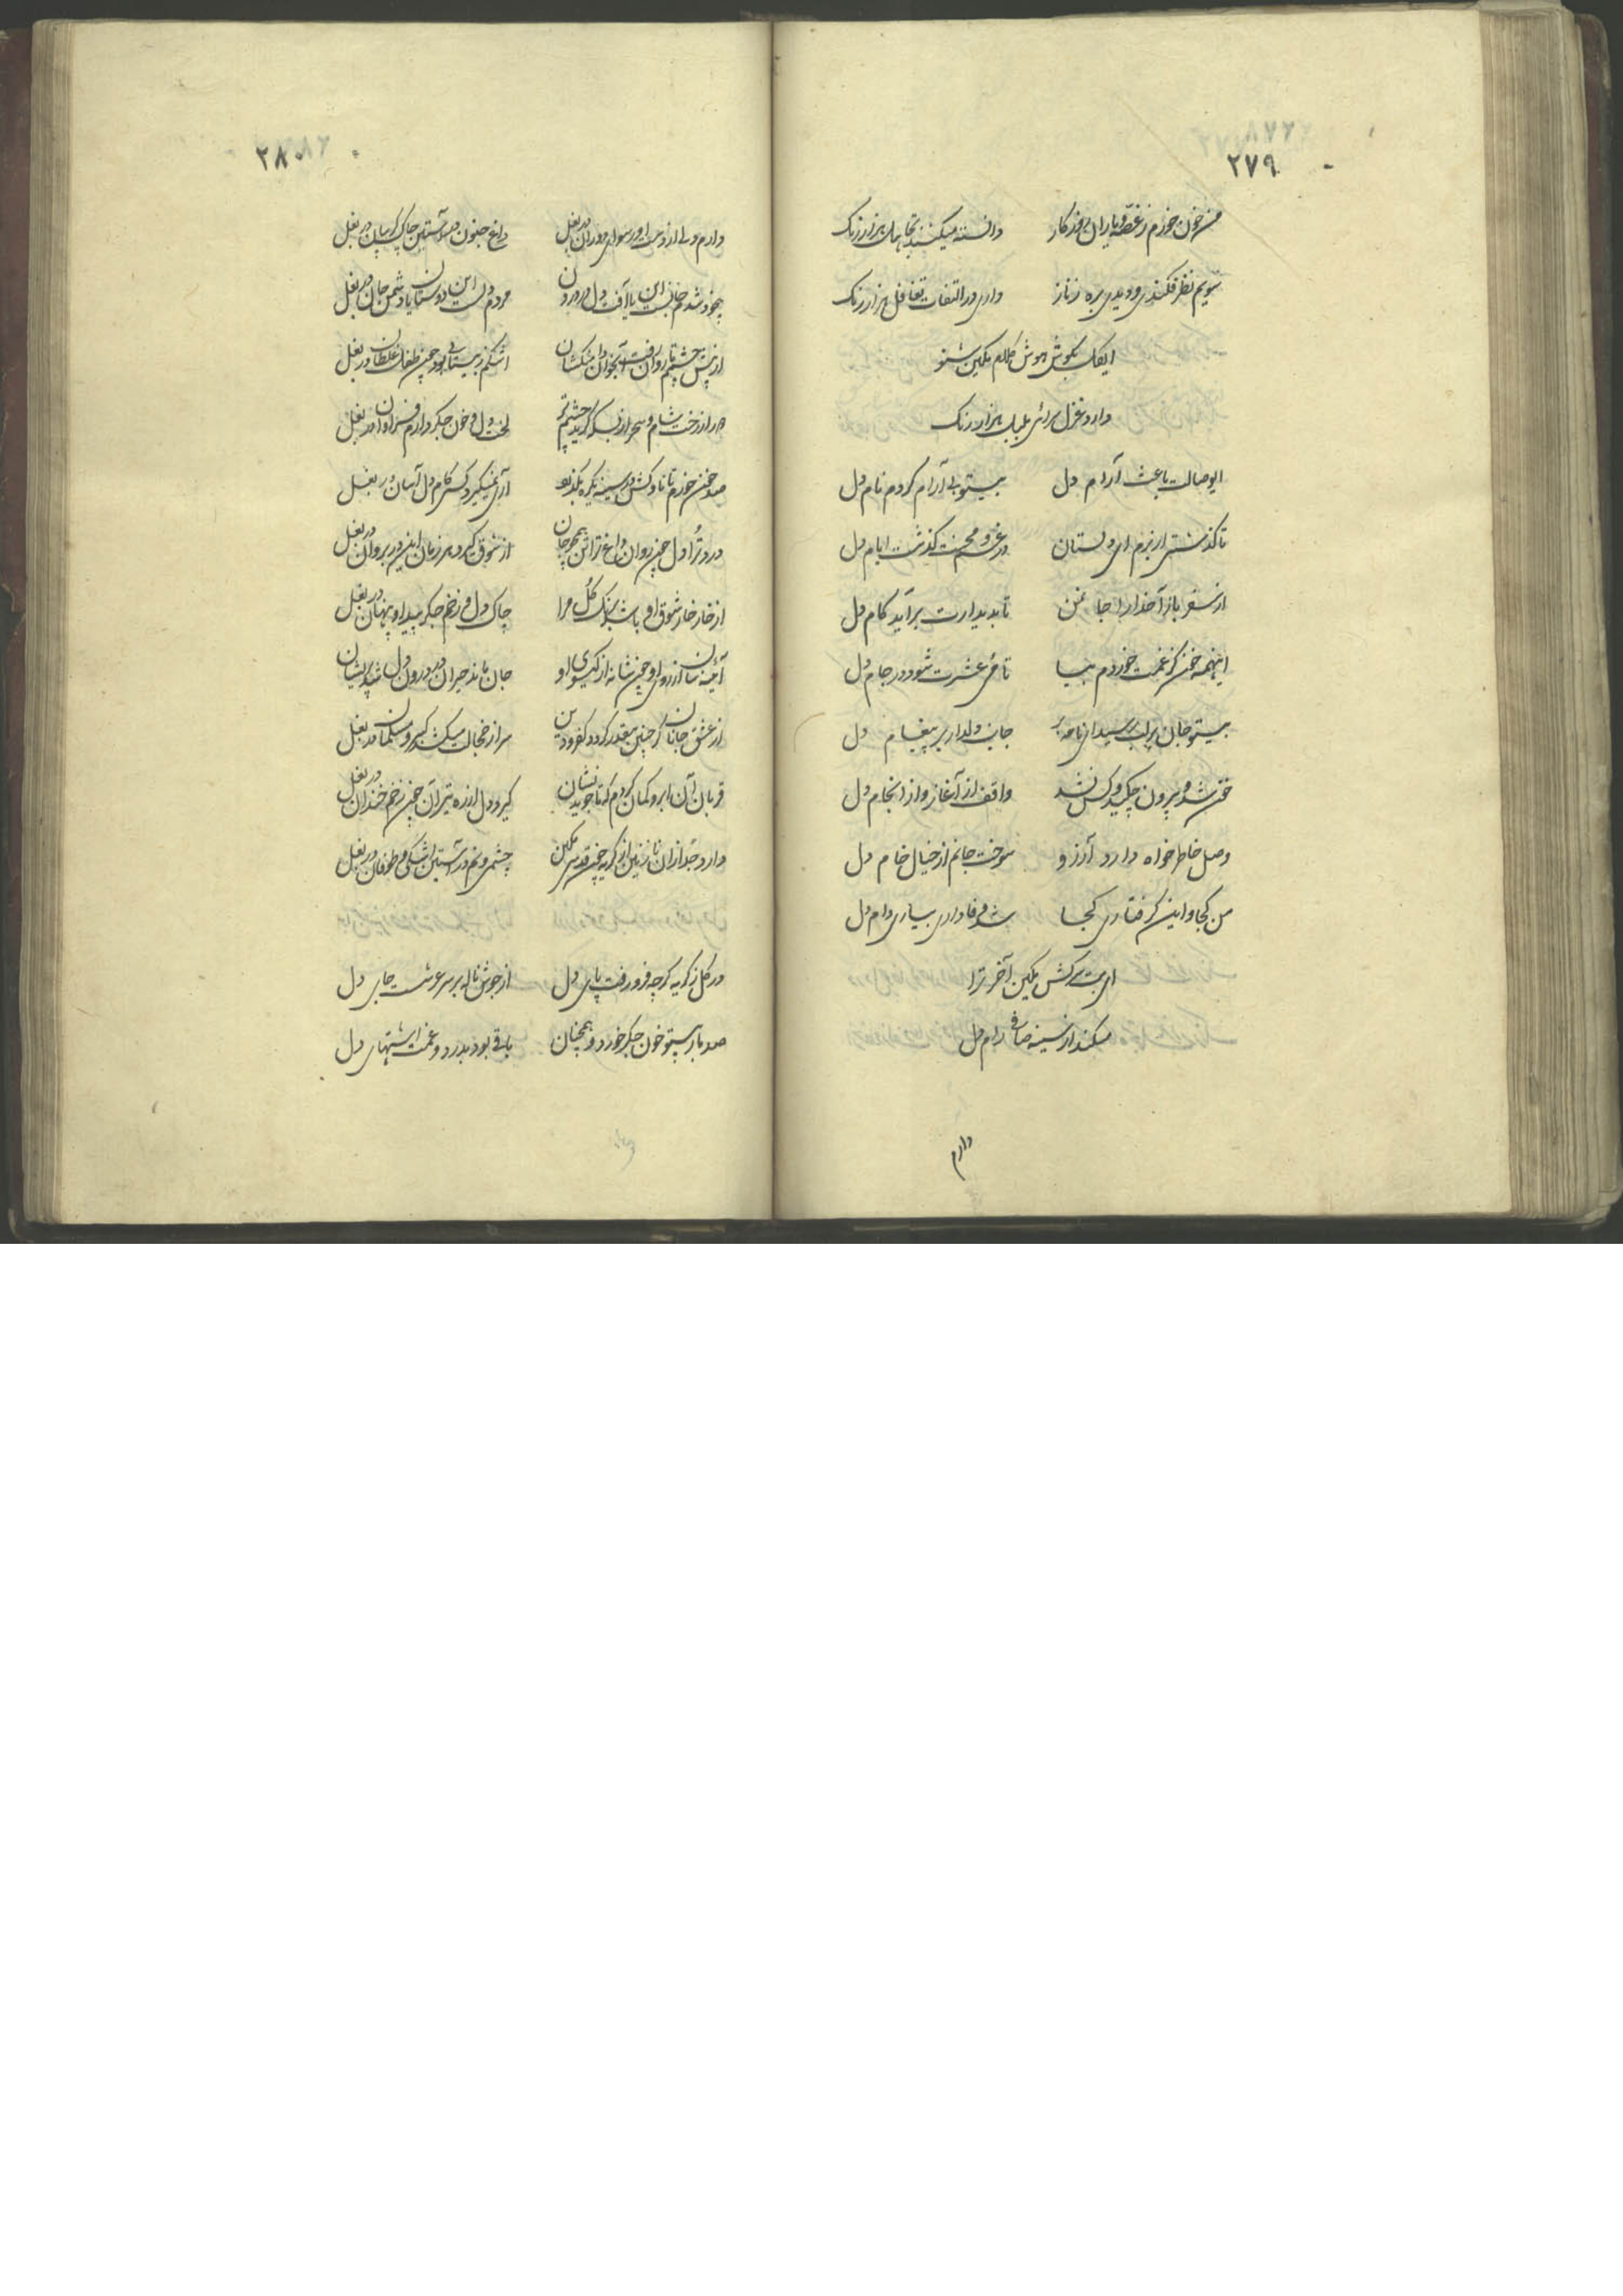 ۲۷۹
من خون خورم ز غصه و یاران بی‌فروکار دانسته میکنند تجاهل هزار رنگ
سویم نظر فکندی و دیدی بره ز ناز داری در التفات تغافل هزار رنگ
ای گل بگوش هوش کلام مکین شنو
دارد غزل سرائی بلبل هزار رنگ
ایوصالت باعث آرام دل بیتو بی آرام کردم نام دل
تا گذشتی از بزم ای دلستان در غم و محنت گذشت ایام دل
از سفر باز آ خدا را جان من تا بدیدارت برآید کام دل
اینهمه خون کز غمت خوردم بیا تا می عشرت شود در جام دل
بیتو جان بر لب رسید ای نامه بر جانب دلدار بر پیغام دل
خون شد و بیرون چکید و کس نشد واقف از آغاز و از انجام دل
وصل خاطر خواه دارد آرزو سوخت جانم از خیال خام دل
من کجا و این گرفتاری کجا شد وفاداری بسیاری دام دل
ای بت سرکش مکین آخر ترا
میکند از سینه صافی رام دل
دارم
۲۸۰
دارم دلی از دست او رسوای دوران در بغل داغ جنون در آستین چاک گریبان در بغل
بیخود شدم جانست این یا آفت دل در درون مردم دلست این دوستان یا دشمن جان در بغل
از پیش چشمم تا روان رفت آنجوان دامنکشان اشکم ز بیتابی بود چون طفل غلطان در بغل
هر از رخت شام و سحر از بسکه گرید چشم تر لخت دل و خون جگر دارم فراوان در بغل
صد خون خورم تا ناوکش در سینه گیرد یکنفس آری نمیگیرد کسی کام دل آسان در بغل
درد ترا دل چون روان داغ ترا تن همچو جان از شوق گیرد هر زمان این در بر و آن در بغل
از خار خار شوق او باشد برنگ گل مرا چاک دل و زخم جگر پیدا و پنهان در بغل
آئینه سان از روی او چون شانه از گیسوی او جان ماند حیران در درون دل شد پریشان در بغل
از عشق جانان گر چنین بیقدر گردد کفر و دین سر از خجالت میکشد گبر و مسلمان در بغل
قربان آن ابرو کمان گردم که تا جوید نشان گیرد دل از ره تیر آن چون زخم خندان در بغل
دارد جدا زان نازنین از گریه چون قدسی مکین چشمی و نم در آستین اشکی و طوفان در بغل
در گل ز گریه گرچه فرو رفت پای دل از جوش ناله بر سر عرشست جای دل
صد بار بیتو خون جگر خورد و همچنان باقی بود بدرد و غمت اشتهای دل